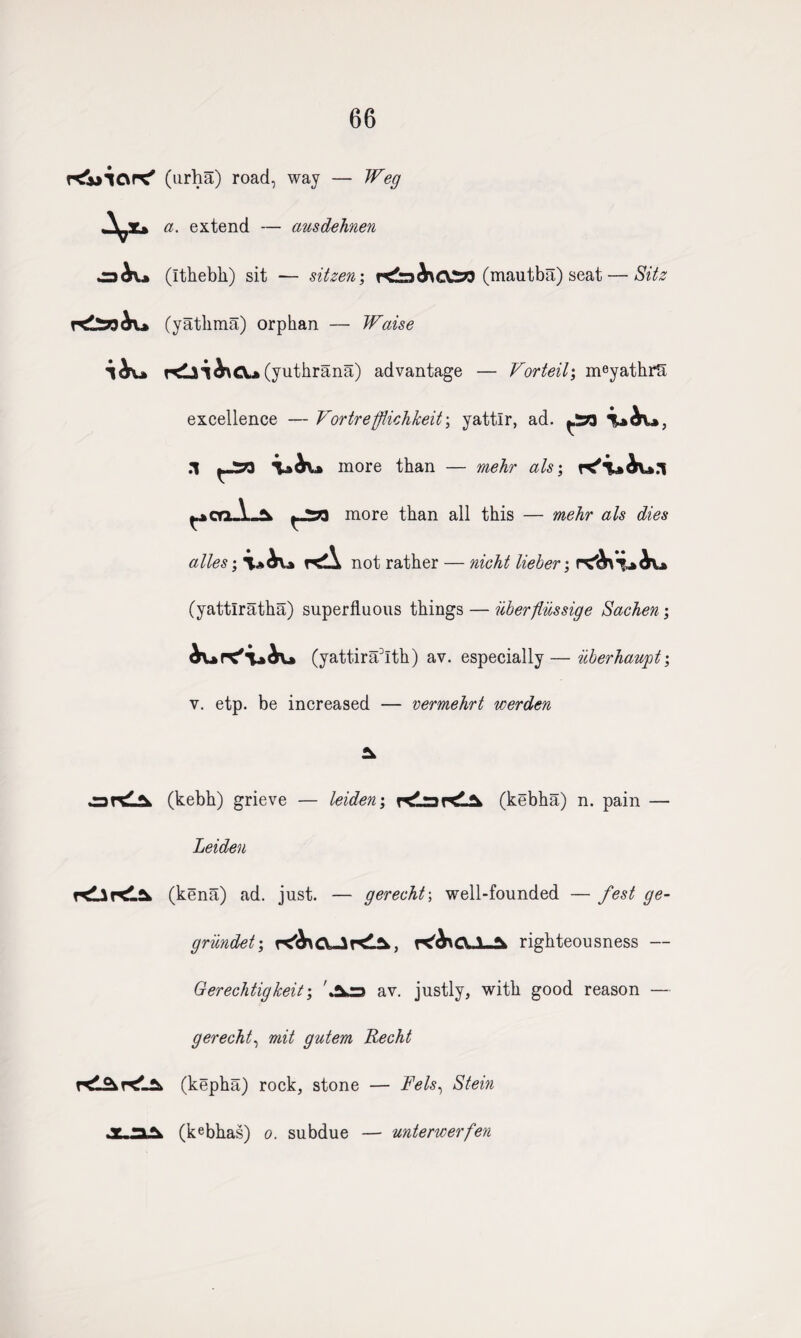 66
ܐܘܪܚܐ (urḥā) road, way — Weg
ܝܫܛ a. extend — ausdehnen
ܝܬܒ (īthebh) sit — sitzen; ܡܘܬܒܐ (mautbā) seat — Sitz
ܝܬܡܐ (yāthmā) orphan — Waise
ܝܬܪ ܝܘܬܪܢܐ (yuthrānā) advantage — Vorteil; mᵉyathrā
excellence — Vortrefflichkeit; yattīr, ad. ܝܬܝܪ ܡܢ,
ܝܬܝܪ ܡܢ ܕ more than — mehr als; ܕܝܬܝܪܐ
ܡܢ ܟܠܗܝܢ more than all this — mehr als dies
alles; ܠܐ ܝܬܝܪ not rather — nicht lieber; ܝܬܝܪ̈ܬܐ
(yattīrāthā) superfluous things — überflüssige Sachen;
ܝܬܝܪܐܝܬ (yattirāʾīth) av. especially — überhaupt;
v. etp. be increased — vermehrt werden
ܟ
ܟܐܒ (kebh) grieve — leiden; ܟܐܒܐ (kēbhā) n. pain —
Leiden
ܟܐܢܐ (kēnā) ad. just. — gerecht; well-founded — fest ge-
gründet; ܟܐܢܘܬܐ, ܟܢܘܬܐ righteousness —
Gerechtigkeit; 'ܒܟ av. justly, with good reason —
gerecht, mit gutem Recht
ܟܐܦܐ (kēphā) rock, stone — Fels, Stein
ܟܒܫ (kᵉbhaš) o. subdue — unterwerfen